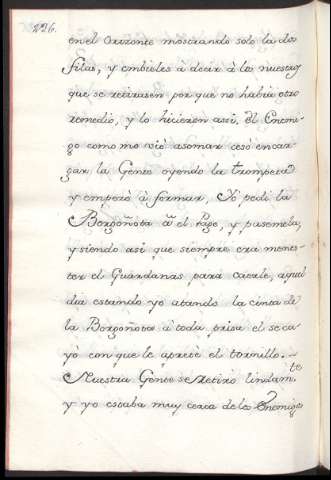 226.
en el Orizonte mostrando solo la dos
filas, y embieles à decir à los nuestros
que se retirasen por que no habia otro
remedio, y lo hicieron assi. El Enemi-
go como me vió asomar ceso en car-
gar la Gente oyendo la trompeta
y empezó à formar, Yó pedi la
Borgoñota à el Page, y pusemela,
y siendo asi que siempre era menes-
ter el Guardanas para caerle, aquel
dia estando yo atando la cinta de
la Borgoñota à toda prisa el se ca-
yó con que le apreté el tornillo.
Nuestra Gente se retiro lindamte
y yo estaba muy cerca de los Enemigos